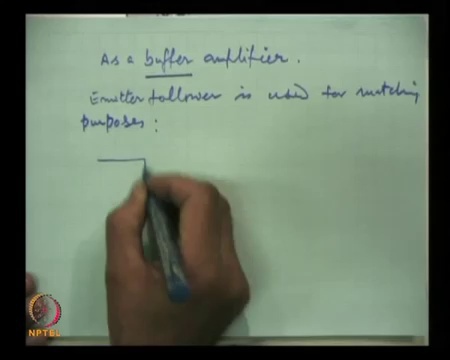 As a buffer amplifier.
Emitter follower is used for matching
purposes:
NPTEL